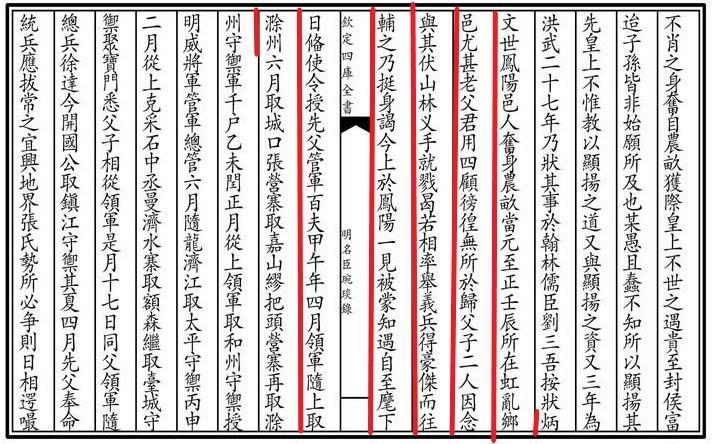 不肖之身奮自農畝獲際皇上不世之遇貴至封侯富
迨子孫皆非始願所及也某愚且蠢不知所以顯揚其
先皇上不惟教以顯揚之道又與顯揚之資又三年為
洪武二十七年乃狀其事於翰林儒臣劉三吾按狀炳
文世鳳陽邑人奮身農畝當元至正壬辰所在虹亂鄉
邑尤甚老父君用四顧徬徨無所於歸父子二人因念
與其伏山林义手就戮曷若相率舉義兵得豪傑而往
輔之乃挺身謁今上於鳳陽一見被蒙知遇自至麾下
欽定四庫全書
明名臣琬琰錄
日俻使令授先父管軍百夫甲午年四月領軍隨上取
滁州六月取城口張營寨取嘉山繆把頭營寨再取滁
州守禦軍千戶乙未閏正月從上領軍取和州守禦授
明威將軍管軍總管六月隨龍濟江取太平守禦丙申
二月從上克采石中丞曼濟水寨取額森繼取臺城守
禦聚寶門悉父子相從領軍是月十七日同父領軍隨
總兵徐達今開國公取鎮江守禦其夏四月先父奉命
統兵應拔常之宜興地界張氏勢所必争則日相遌嘬